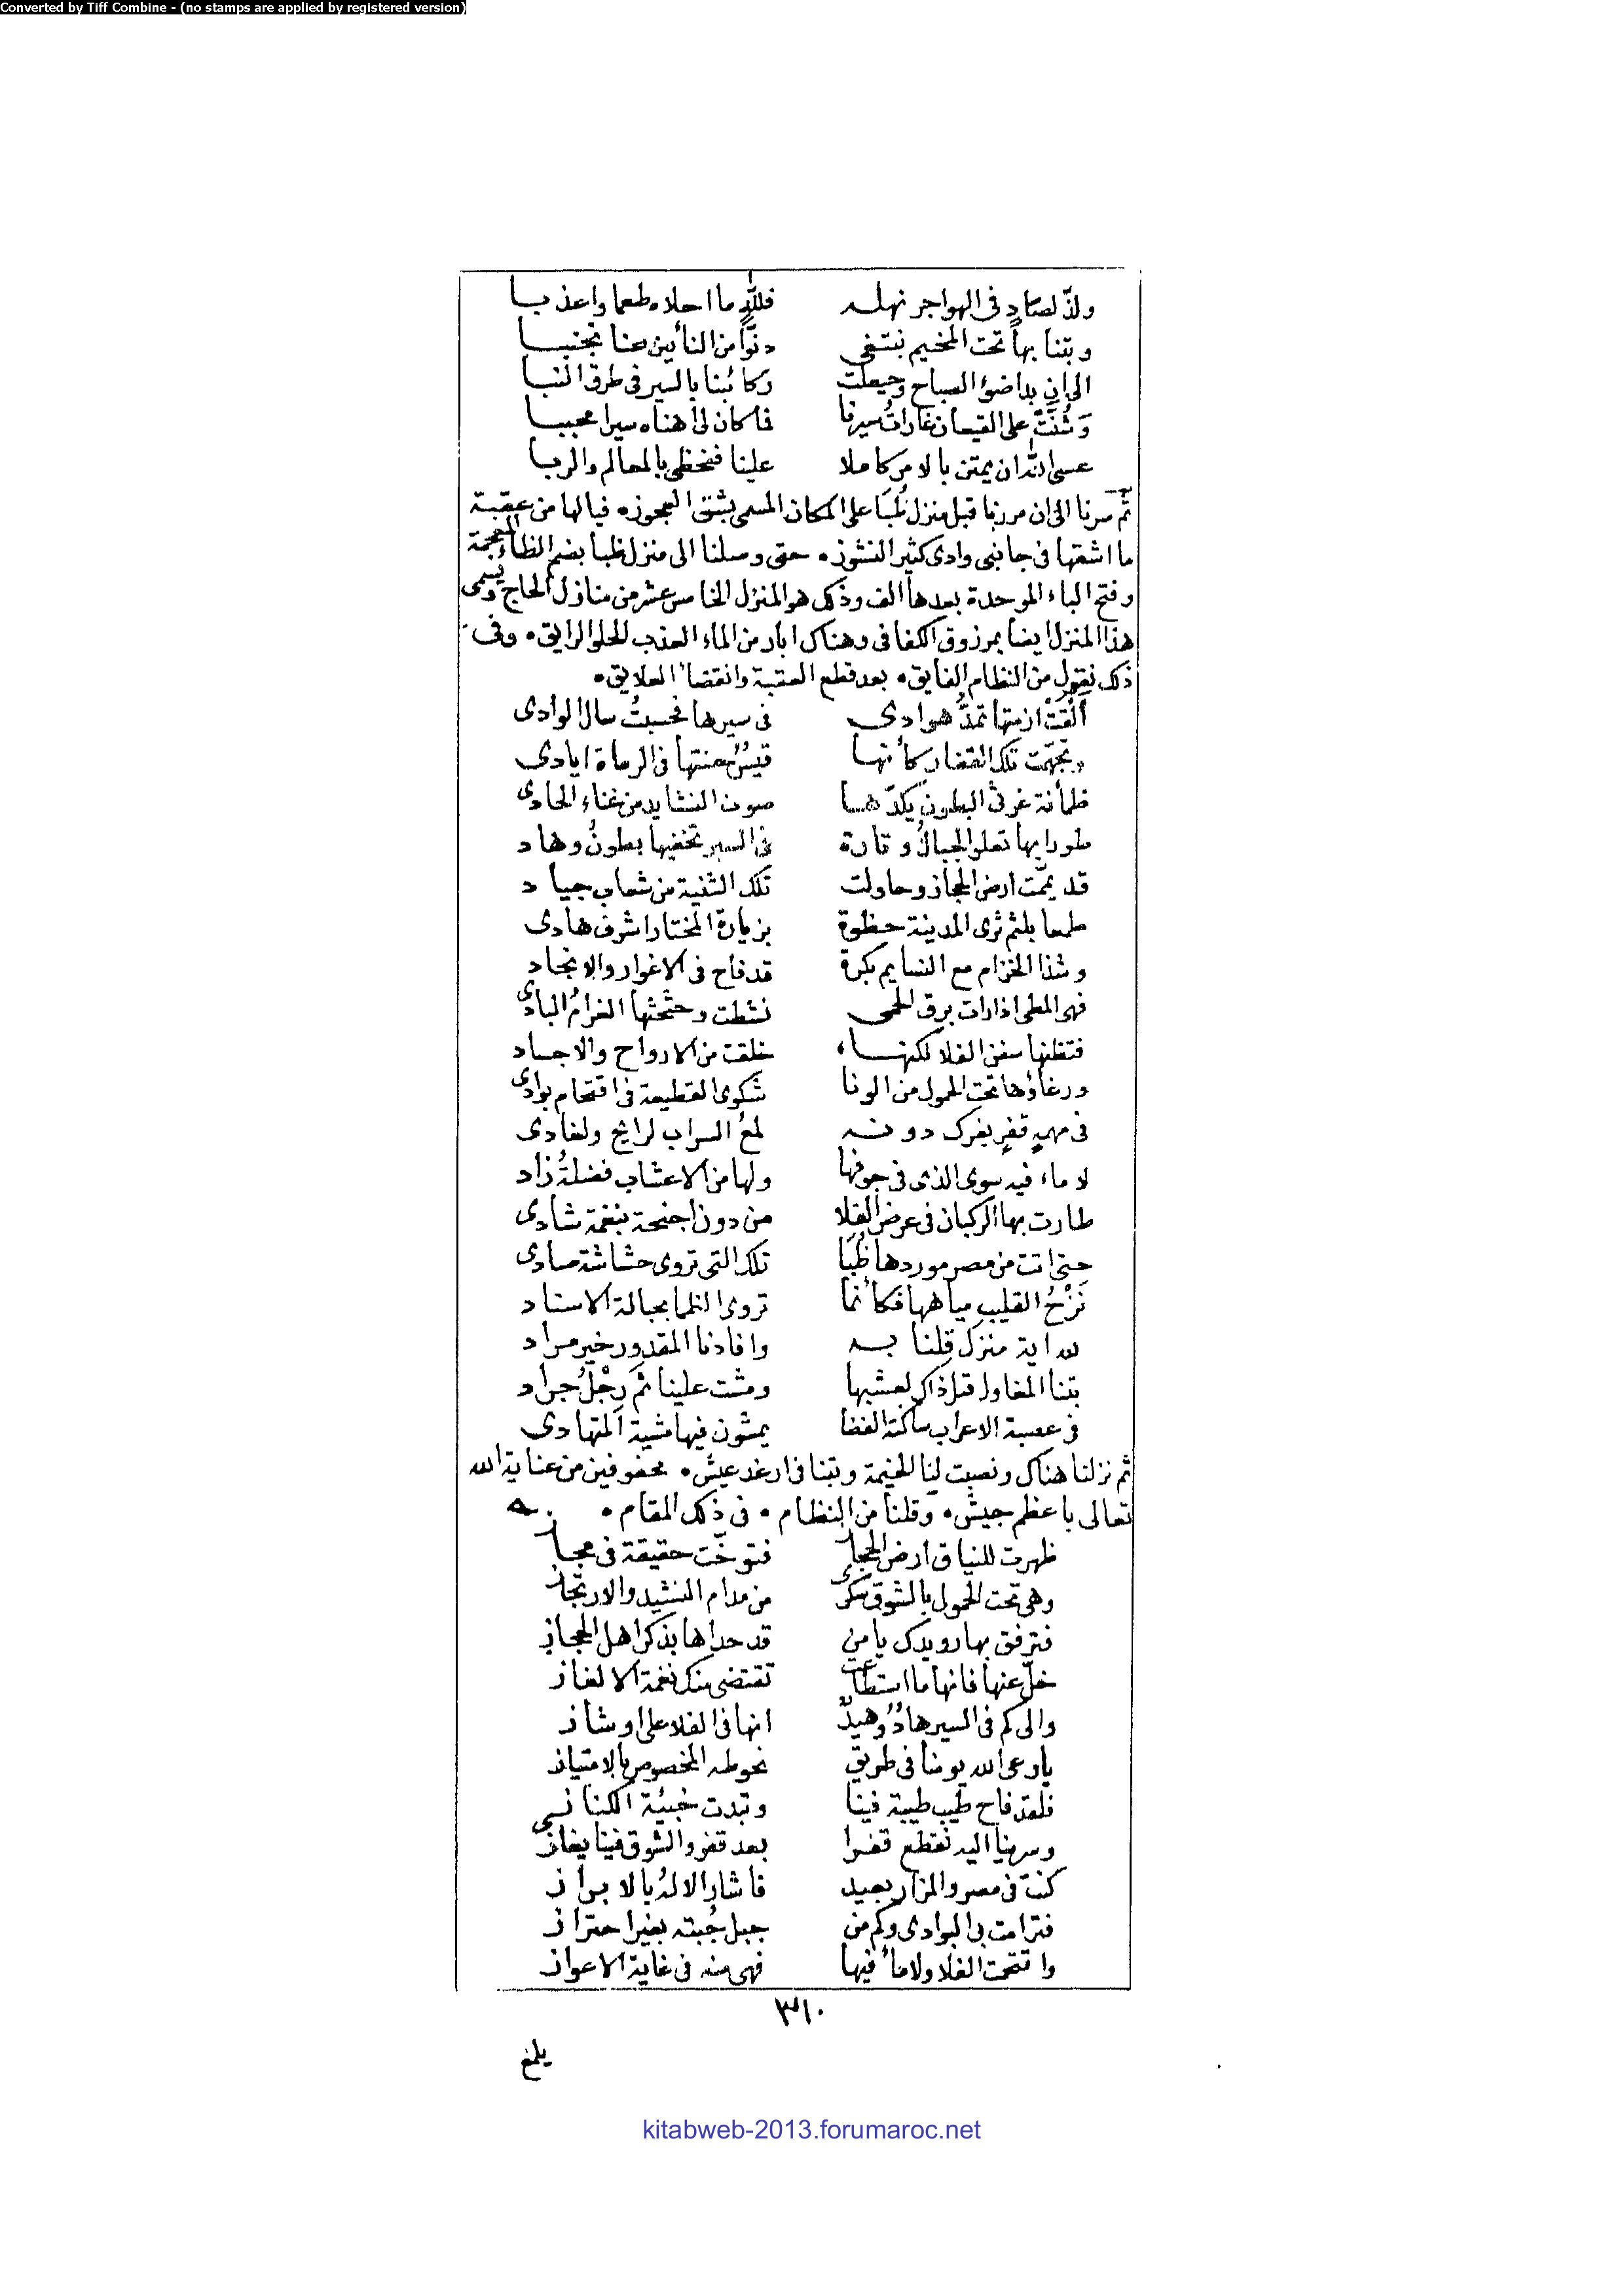 Converted by Tiff Combine - (no stamps are applied by registered version)
ولذّ لصادٍ فى الهواجر نهله فللّٰهِ ما احلاه طعما واعذبا
وبتنا بها تحت المخيم نبتغى دنوّا من النأين عنا تجنبا
الى ان بدا ضؤ الصباح وحيعلت ركائبنا بالسير فى طرق النبا
وشُنَّتْ على القيعان غارات سيرنا فاكان لى اهناه سيرا محببا
عسى الله ان يمتن بالامر كاملا علينا فنحظى بالمعالم والربا
ثم سرنا الى ان مررنا قبل منزل ظبا على المكان المسمى بشق العجوزه فيالها من عقبة
ما اشقها فى جانبى وادى كثير النشوز ٠ حتى وصلنا الى منزل ظبا بضم الظاء المعجمة
وفتح الباء الموحدة بعدها الف وذلك هو المنزل الخامس عشر من منازل الحاج ويسمى
هذا المنزل ايضا بمرزوق الكفافى وهناك ابار من الماء العذب الحلو الرايق ٠ وفى
ذلك نقول من النظام الفايق ٠ بعد قطع العقبة وانقضا العلايق ٠
أَلْقَتْ ازمتها تمدّ هوادى فى سيرها فحسبتُ سال الوادى
وتجهمت تلك القفار كأنها قيسُ صنتها فى الرماة ايادى
ظمأنة غرثى البطون يكدّها صوت النشايد من غناء الحادى
طورا بها تعلو الجبالُ وتارة فى السير تخفيها بطونُ وهاد
قد يممّت ارض الحجاز وحاولت تلك الثنية من شعاب جياد
طمعا بلثم ثرى المدينة حظوة بزيارة المختار اشرف هادى
وشذا الخزام مع النسايم بكرة قد فاح فى الاغوار والانجاد
فهى المطى اذا رات برق الحمى نشطت وحثحثها الغرامُ البادى
فتظنها سفن الفلا لكنها خلقت من الارواح والاجساد
ورغاؤها تحت الحمول من الونا شكوى القطيعة فى اقتحام بوادى
فى مهمهٍ قفرٍ يغرك دونه لمعُ السراب لرايح ولغادى
لا ماء فيه سوى الذى فى جوفها ولها من الاعشاب فضلةُ زاد
طارت بها الركبان فى عرض الفلا من دون اجنحة بنغمة شادى
حتى اتت من مصر موردها ظُبَا تلك التى تروى حشاشة صادى
نَزْحُ القليب مياهها فكأنما تروى الظما بجبالة الاستاد
لله اية منزل قلنا به وافادنا المقدور خير مراد
بتنا المغاول قبل ذاك لعشبها ومشت علينا ثَم رِجْلُ جراد
فى عصبة الاعراب ساكنة الفضا يمشون فيها مشية المتهادى
ثم نزلنا هناك ونصبت لنا الخيمة وبتنا فى ارغد عيش ٠ محفوفين من عناية الله
تعالى باعظم جيش ٠ وقلنا من النظام ٠ فى ذلك المقام ٠
ظهرت للنياق ارض الحجاز فتوخّت حقيقة فى مجاز
وهى تحت الحمول بالشوق سكرى من مدام النشيد والارتجاز
فترفق بها رويدك يا من قد حداها بذكر اهل الحجاز
خلّ عنها فانها ما استطاعت تقتضى منك نغمة الالغاز
والى كم فى السير هادٌ وهيدٌ انها فى الفلا على اوشاز
يا رعى الله يومنا فى طريق نحو طه المخصوص بالامتياز
فلقد فاح طيب طيبة فينا وتبدت خبيئة الكناز
وسرينا اليه نقطع قفرا بعد قفر والشوق فينا يغاز
كنت فى مصر والمزار بعيد فاشار الالهُ بالابراز
فترامت بى البوادى وكم من جبل جُبته بغير احتراز
واقتحمت الفلا ولا ماً فيها فهى منه فى غاية الاعواز
٣١٠
يلمغ
kitabweb-2013.forumaroc.net